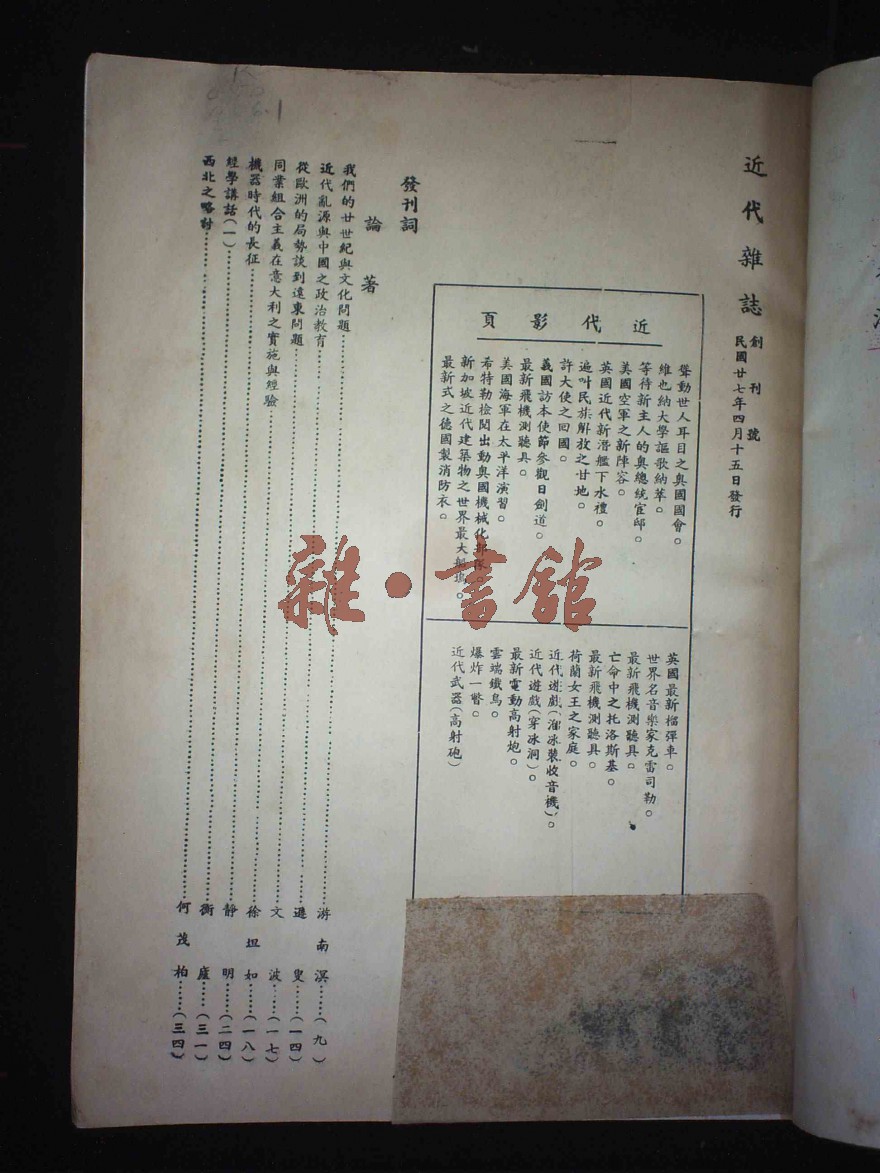 近代雜誌
創刊號
民國廿七年四月十五日發行
近代影頁
聳動世人耳目之奧國國會。
維也納大學謳歌納萃。
等待新主人的奧總統官邸。
美國空軍之新陣容。
英國近代新潛艦下水禮。
遍叫民族解放之甘地。
許大使之回國。
義國訪本使節參觀日劍道。
最新飛機測聽具。
美國海軍在太平洋演習。
希特勒檢閱出動奧國機械化部隊。
新加坡近代建築物之世界最大船塢。
最新式之德國製消防衣。
英國最新榴彈車。
世界名音樂家克雷司勒。
最新飛機測聽具。
亡命中之托洛斯基。
最新飛機測聽具。
荷蘭女王之家庭。
近代遊戲(溜冰裝收音機)。
近代遊戲(穿冰洞)。
最新電動高射炮。
雲端鐵鳥。
爆炸一瞥。
近代武器(高射砲)
發刊詞
論著
我們的廿世紀與文化問題……游南溟……(九)
近代亂源與中國之政治教育……遯叟……(一四)
從歐洲的局勢談到遠東問題……文波……(一七)
同業組合主義在意大利之實施與經驗……徐坦如……(一八)
機器時代的長征……靜明……(二四)
經學講話(一)……衡廬……(三一)
西北之略討……何茂柏……(三四)
雜·書館